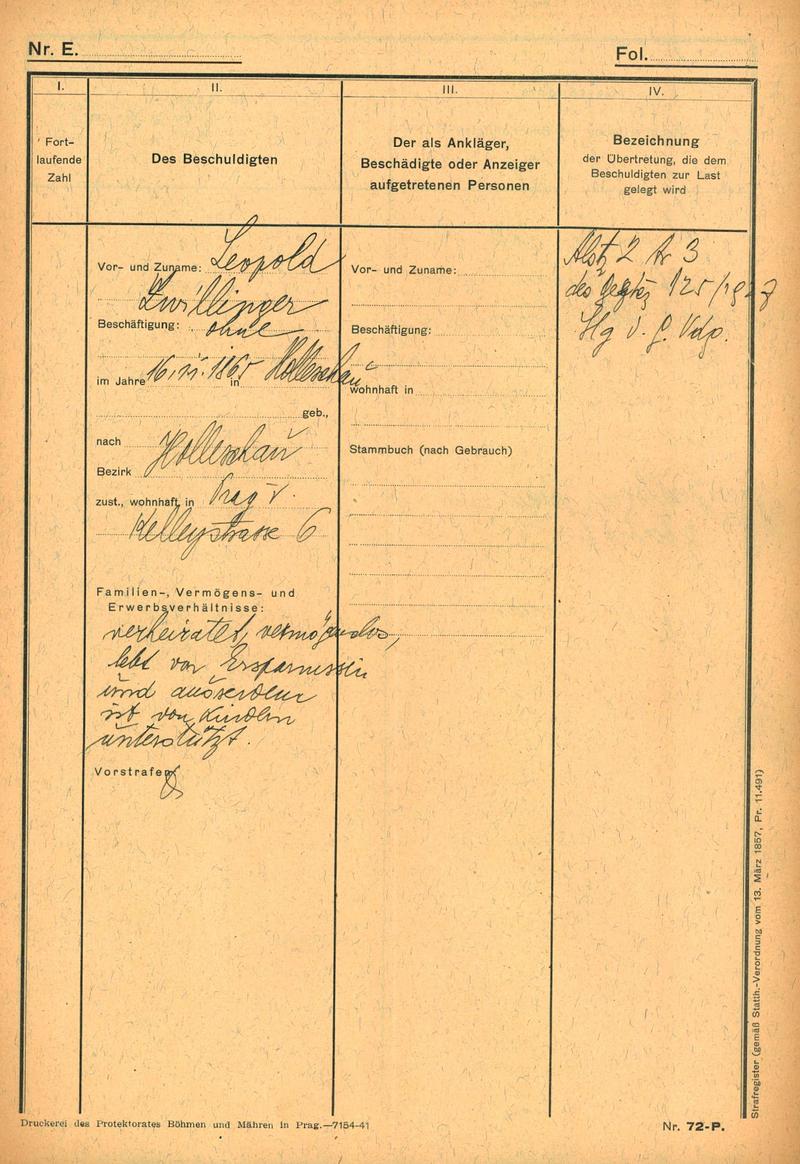 Nr. E.
Fol.
I.
Fort-
laufende
Zahl
II.
Des Beschuldigten
III.
Der als Ankläger,
Beschädigte oder Anzeiger
aufgetretenen Personen
IV.
Bezeichnung
der Übertretung, die dem
Beschuldigten zur Last
gelegt wird
Vor- und Zuname: Leopold
Zwillinger
Beschäftigung: ohne
im Jahre 1865 in Holleschau
geb.,
nach Holleschau
Bezirk
zust., wohnhaft in Prag V.
Kelleystrasse 6
Familien-, Vermögens- und
Erwerbsverhältnisse:
verheiratet, vermögenslos,
lebt von Ersparnissen
und ausserdem
ist von Kindern
unterstützt.
Vorstrafen
Vor- und Zuname:
Beschäftigung:
wohnhaft in
Stammbuch (nach Gebrauch)
2 Nr 3
des 125/1927
Slg d. G. Vdg.
Strafregister (gemäß Statth.-Verordnung vom 13. März 1857, Pr. 11.491)
Druckerei des Protektorates Böhmen und Mähren in Prag.—7154-41
Nr. 72-P.